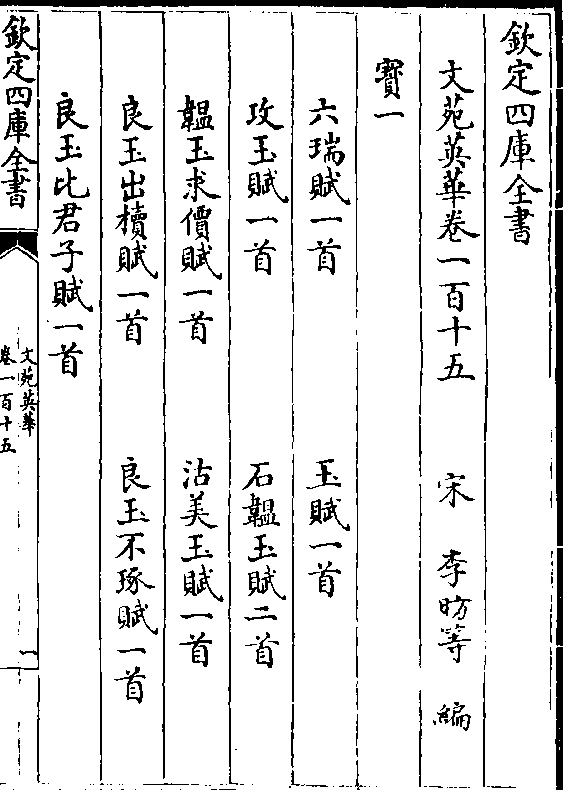 欽定四庫全書
文苑英華卷一百十五 宋 李昉等 編
寳一
六瑞賦一首 玉賦一首
攻玉賦一首 石韞玉賦二首
韞玉求價賦一首 沽美玉賦一首
良玉出櫝賦一首 良玉不琢賦一首
良玉比君子賦一首
欽定四庫全書
文苑英華
卷一百十五
一